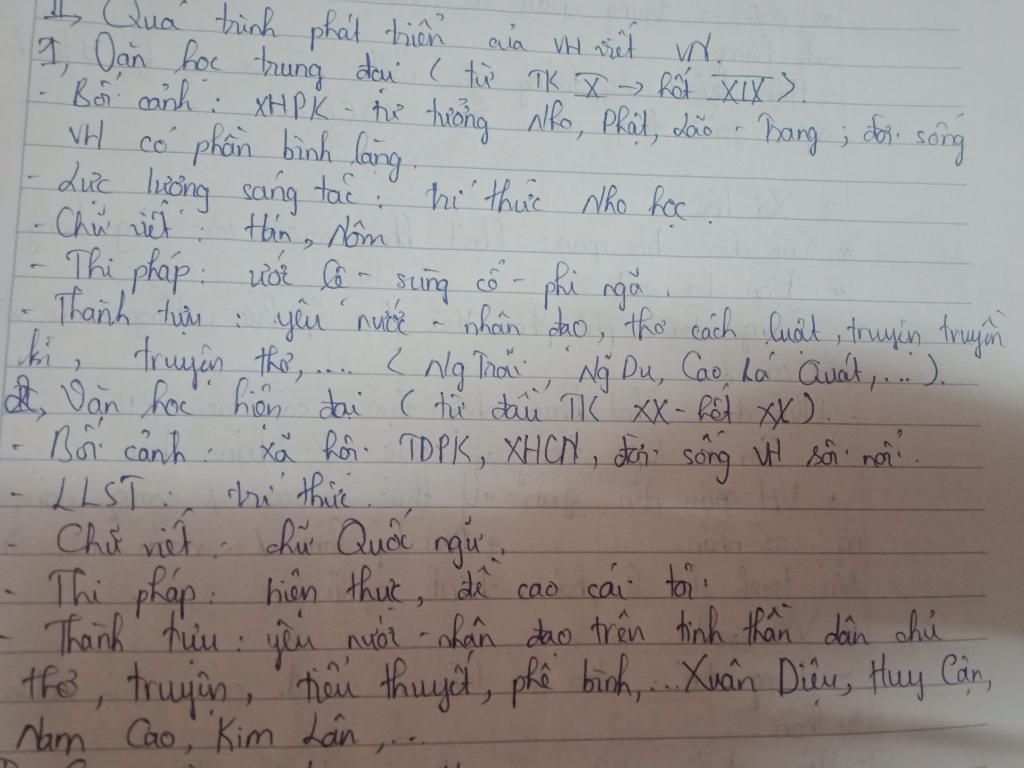 II, Quá trình phát triển của VH viết VN.
1, Văn học trung đại ( từ TK X → hết XIX ).
- Bối cảnh : XHPK - tư tưởng Nho, Phật, Lão - Trang ; đời sống
VH có phần bình lặng.
- Lực lượng sáng tác : trí thức Nho học.
- Chữ viết : Hán, Nôm
- Thi pháp : ước lệ - sùng cổ - phi ngã.
- Thành tựu : yêu nước - nhân đạo, thơ cách luật, truyện truyền
kì, truyện thơ, .... ( Ng Trãi, Ng Du, Cao Bá Quát, ... ).
2, Văn học hiện đại ( từ đầu TK XX - hết XX ).
- Bối cảnh : xã hội TDPK, XHCN, đời sống VH sôi nổi.
- LLST : trí thức.
- Chữ viết : chữ Quốc ngữ.
- Thi pháp : hiện thực, đề cao cái tôi.
- Thành tựu : yêu nước - nhân đạo trên tinh thần dân chủ
thơ, truyện, tiểu thuyết, phê bình, ... Xuân Diệu, Huy Cận,
Nam Cao, Kim Lân, ...